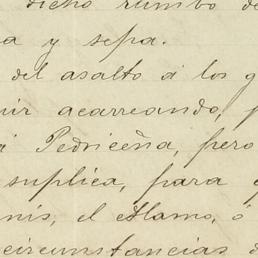 dicho rumbo de
a y sepa.
del asalto á los g
uir acarreando, p
á Pedriceña, pero
suplica, para q
nis, el Alamo, ó
circunstancias d